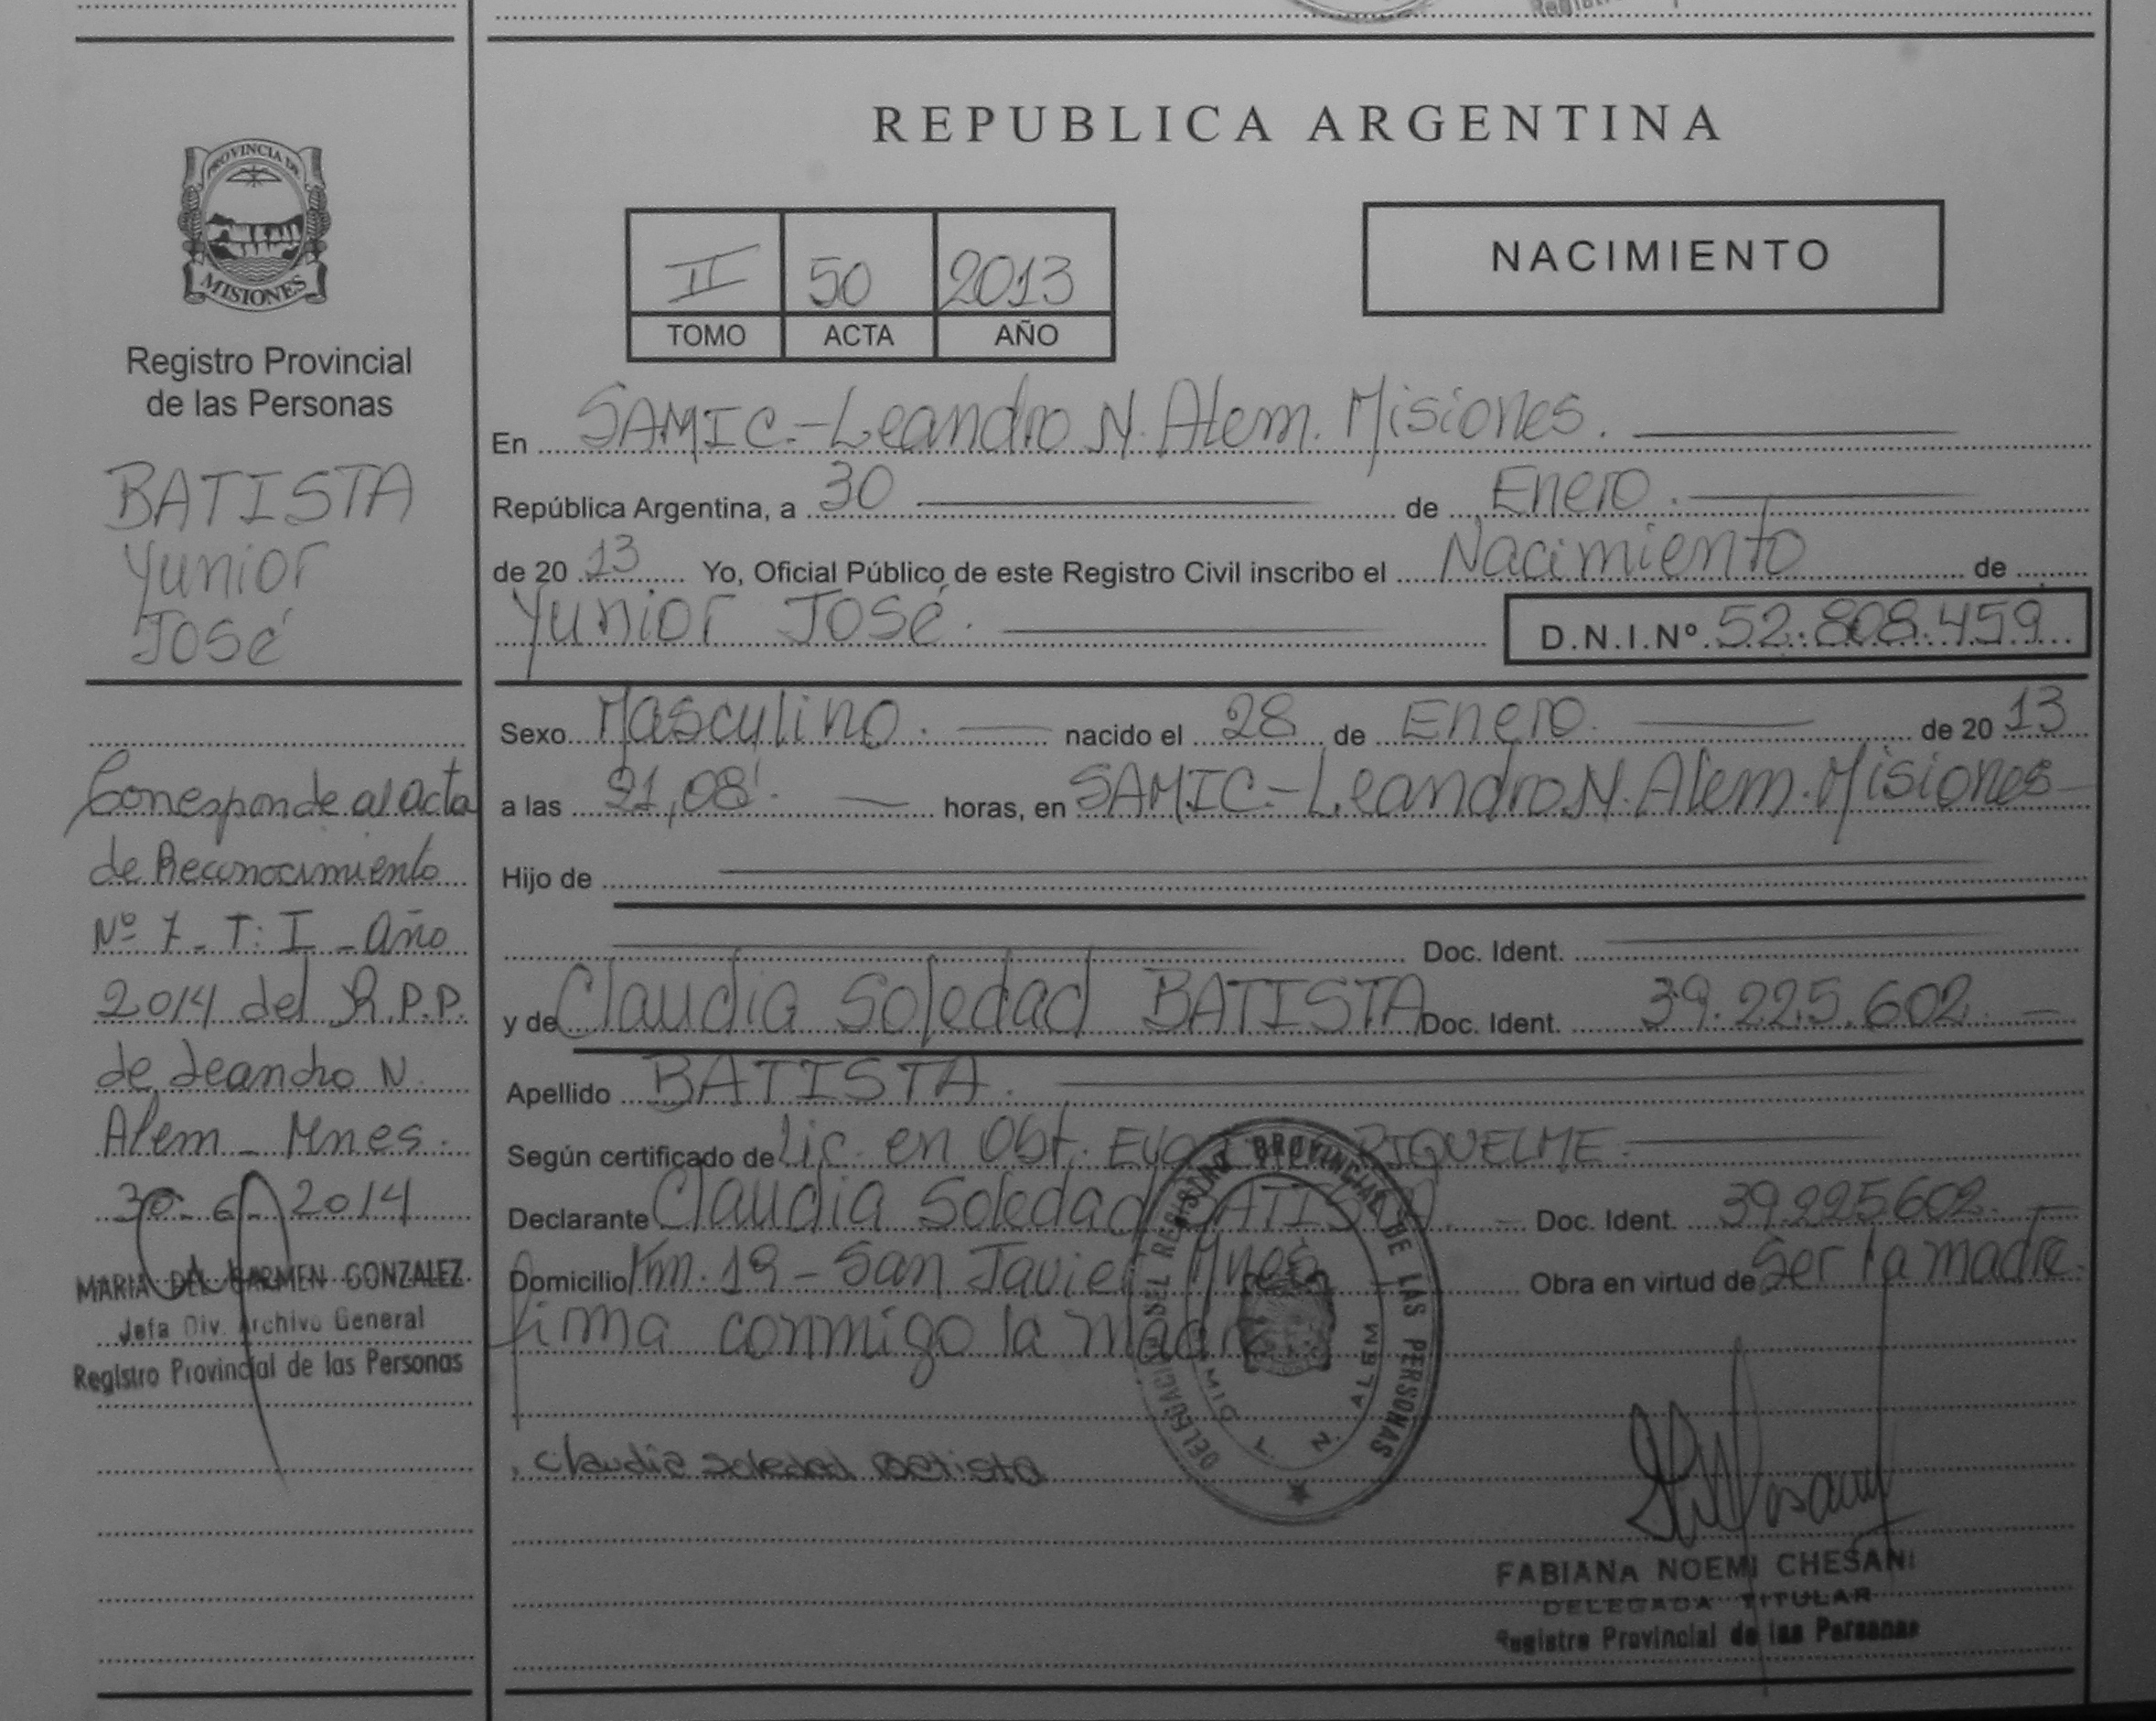 REPUBLICA ARGENTINA
PROVINCIA DE
MISIONES
Registro Provincial
de las Personas
BATISTA
Yunior
José
Corresponde al acta
de Reconocimiento
Nº 7 - T: I - Año
2014 del R.P.P.
de Leandro N.
Alem - Mnes.
30-6-2014
MARIA DEL CARMEN GONZALEZ
Jefa Div. Archivo General
Registro Provincial de las Personas
II 50 2013
TOMO ACTA AÑO
NACIMIENTO
En SAMIC.-Leandro N. Alem. Misiones.
República Argentina, a 30 de Enero.
de 20 13 Yo, Oficial Público de este Registro Civil inscribo el Nacimiento de
Yunior José.
D.N.I.Nº 52.808.459
Sexo Masculino. nacido el 28 de Enero. de 20 13
a las 21,08'. horas, en SAMIC.-Leandro N. Alem. Misiones
Hijo de
Doc. Ident.
y de Claudia Soledad BATISTA Doc. Ident. 39.225.602.
Apellido BATISTA.
Según certificado de Lic. en Obst. RIQUELME.
Declarante Claudia Soledad BATISTA. Doc. Ident. 39.225602.
Domicilio Km. 19 - San Javier Mnes Obra en virtud de Ser la madre.
Firma conmigo la madre
Claudia Soledad Batista
DELEGACION DEL REGISTRO PROVINCIAL DE LAS PERSONAS
L. N. ALEM
FABIANA NOEMI CHESANI
DELEGADA TITULAR
Registro Provincial de las Personas